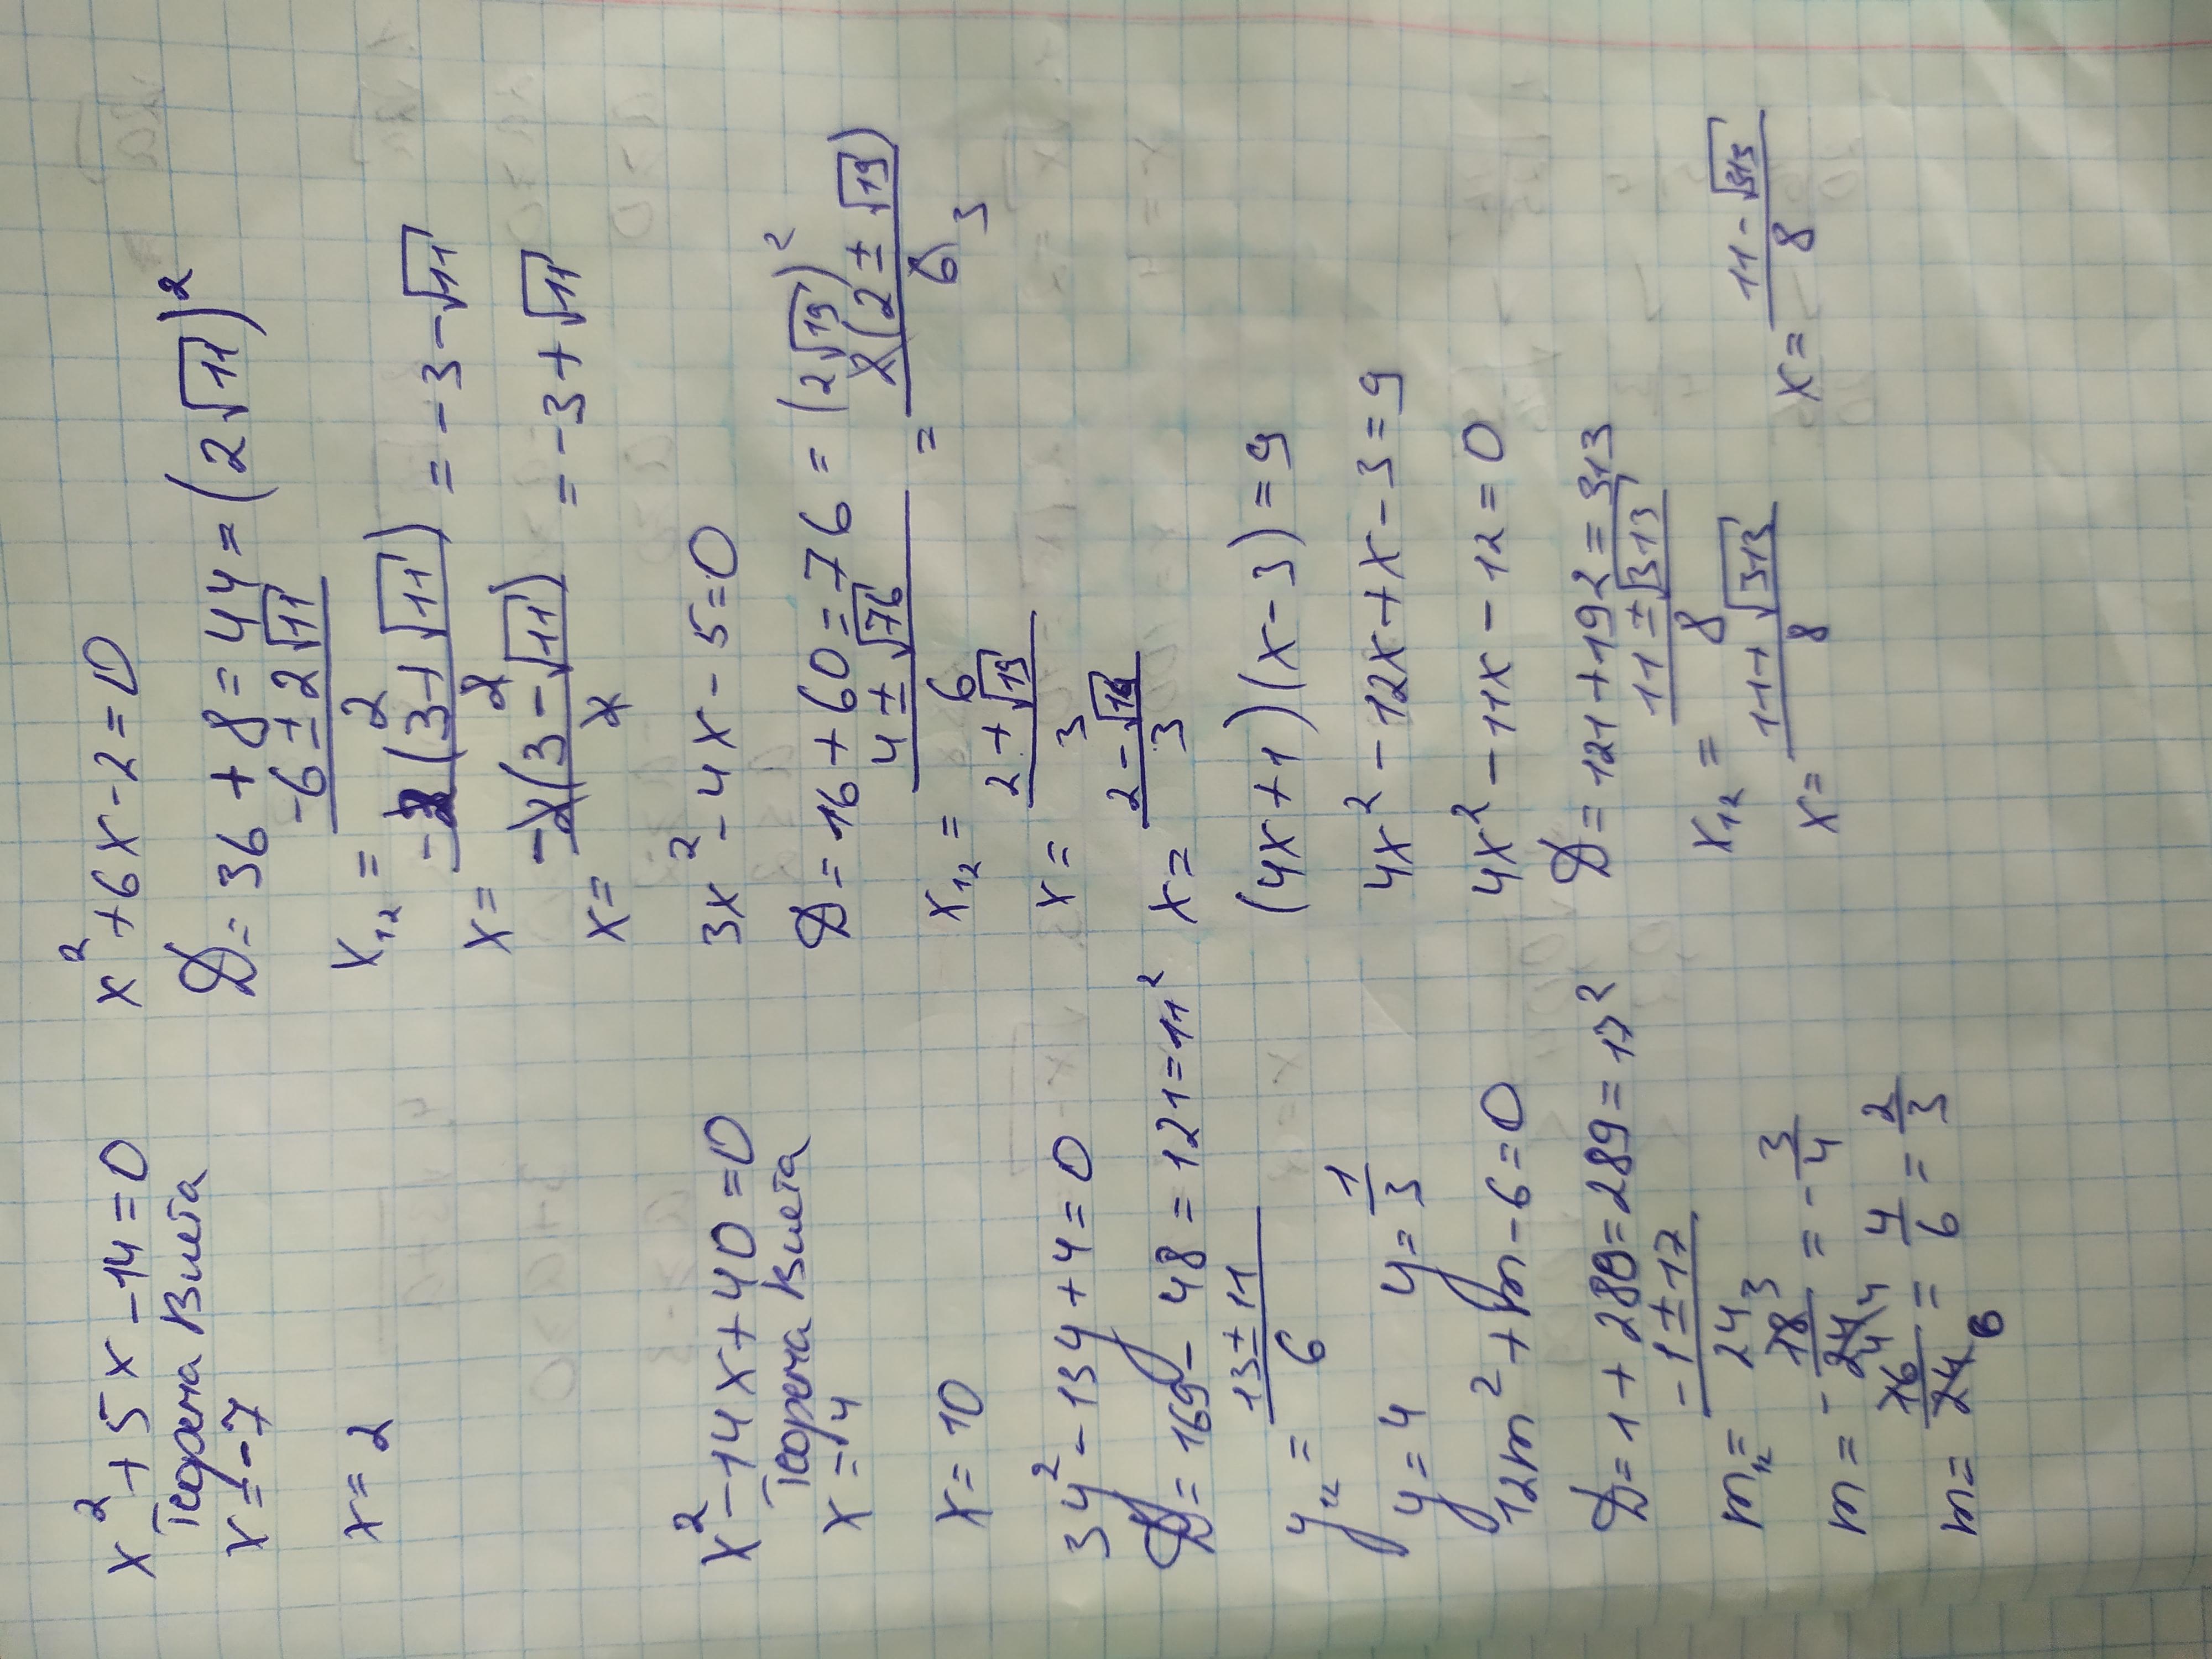 x² + 5x - 14 = 0
Теорема Виета
x = -7
x = 2
x² - 14x + 40 = 0
Теорема Виета
x = 4
x = 10
3y² - 13y + 4 = 0
D = 169 - 48 = 121 = 11²
y₁₂ = (13 ± 11)/6
y = 4 y = 1/3
12m² + m - 6 = 0
D = 1 + 288 = 289 = 17²
m₁₂ = (-1 ± 17)/24
m = -18/24 3 4 = -3/4
m = 16/24 4 6 = 4/6 = 2/3
x² + 6x - 2 = 0
D = 36 + 8 = 44 = (2√11)²
x₁₂ = (-6 ± 2√11)/2
x = -2(3 + √11)/2 = -3 - √11
x = -2(3 - √11)/2 = -3 + √11
3x² - 4x - 5 = 0
D = 16 + 60 = 76 = (2√19)²
x₁₂ = (4 ± √76)/6 = 2(2 ± √19)/6 3
x = (2 + √19)/3
x = (2 - √19)/3
(4x + 1)(x - 3) = 9
4x² - 12x + x - 3 = 9
4x² - 11x - 12 = 0
D = 121 + 192 = 313
x₁₂ = (11 ± √313)/8
x = (11 + √313)/8 x = (11 - √313)/8